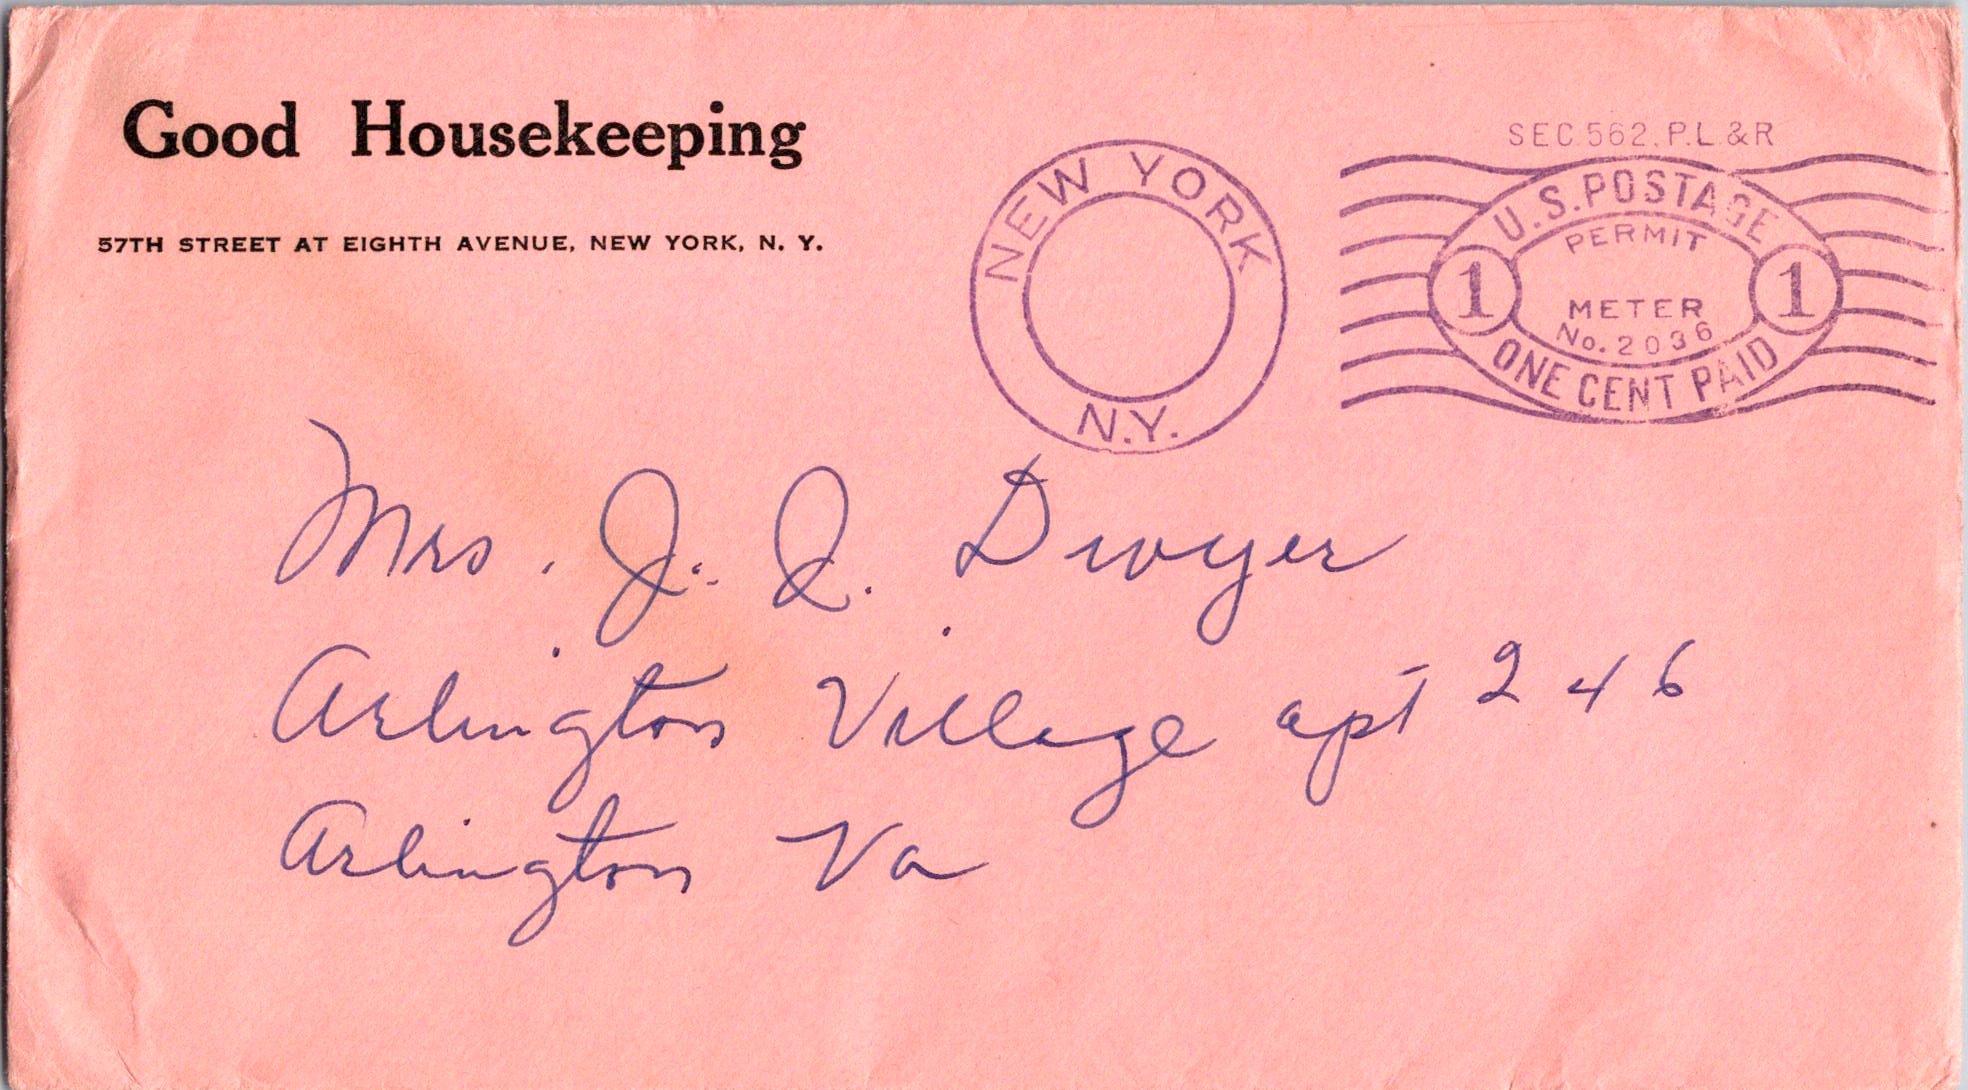 Good Housekeeping
57TH STREET AT EIGHTH AVENUE, NEW YORK, N. Y.
NEW YORK
N.Y.
SEC. 562, P.L.&R
U.S. POSTAGE
PERMIT
1 1
METER
No. 2036
ONE CENT PAID
Mrs. J. Q. Dwyer
Arlington Village apt 246
Arlington Va